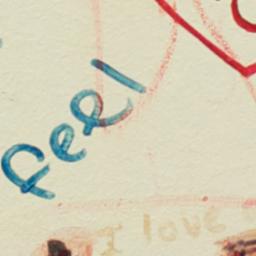 feel
I love